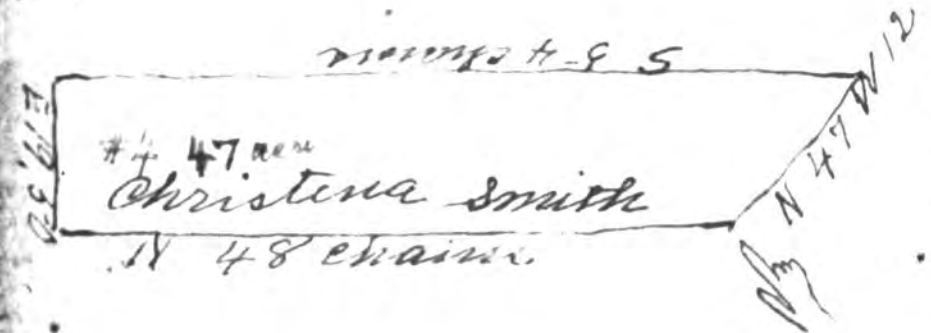 S 54 chains
E 9,30
#4 47 acres
Christena Smith
N 48 chains.
N 47 W 12